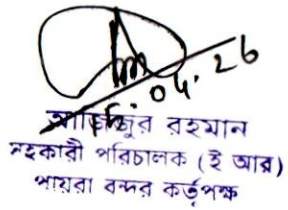 15.04.26
রহমান
সহকারী পরিচালক (ই আর)
পায়রা বন্দর কর্তৃপক্ষ